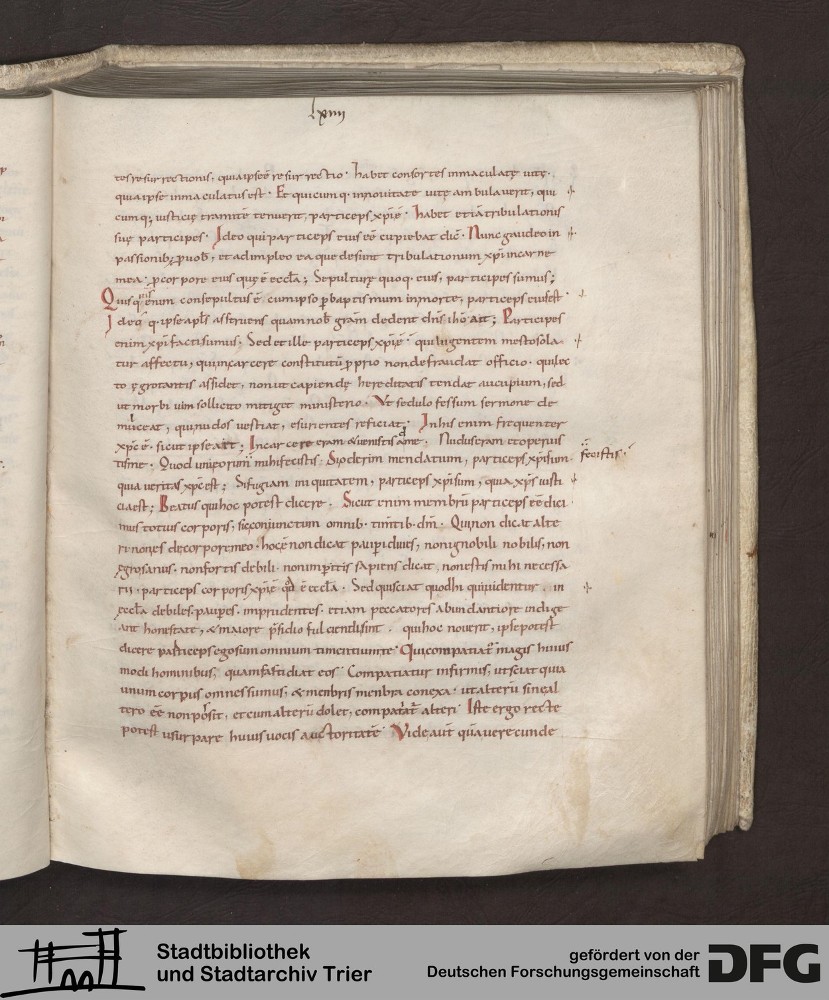 lxiiii
tes resurrectionis, quia ipse ē resurrectio · habet consortes inmaculatę uitę,
quia ipse inmaculatus est · Et quicumq· in nouitate uitę ambulauerit, qui
cumq; iusticię tramitē tenuerit, particeps xp̄i ē · habet etiā tribulationis
suę participes · Ideo qui particeps eius ēē cupiebat dic̄ · Nunc gaudeo in
passionib; p uob̄, et adimpleo ea que desunt tribulationum xp̄i in carne
mea · p corpore eius quę ē eccl̄a ; Sepulturę quoq· eius, participes sumus ;
Quisq· enum consepultus ē cum ipso p baptismum in morte, particeps ei' est ·
Ideo q· ipse apl̄s astruens quam nob̄ gr̄am dederit dn̄s ih̄s ait ; Participes
enim xp̄i facti sumus · Sed et ille particeps xp̄i ē · qui lugentem mesto sola
tur affectu, qui in carcere constitutū pprio non defraudat officio · qui lec
to ęgrotantis assidet, non ut capiendę hereditatis tendat aucupium, sed
ut morbi uim sollicito mitiget ministerio · Vt sedulo fessum sermone de
mulceat, qui nudos uestiat, esurientes reficiat · In his enim frequenter
xp̄c ē · sicut ipse ait ; In carcere eram & uenistis ad me · Nudus eram et operuis
tis me · Quod uni horum mihi fecistis · Si oderim mendatium, particeps xp̄i sum fecistis ·
quia ueritas xp̄c est ; Si fugiam iniquitatem, particeps xp̄i sum, quia xp̄s iusti
cia est ; Beatus qui hoc potest dicere · Sicut enim membrū particeps ēē dici
mus totius corporis, sic coniunctum omnib· timtib· dm̄ · Qui non dicat alte
ri non es de corpore meo · hoc ē non dicat paupi diues, non ignobili nobilis, non
ęgro sanus · non fortis debili · non impitis sapiens dicat, non estis mihi necessa
rii · particeps corporis xp̄i ē qd ē eccl̄a · Sed qui sciat quod hi qui uidentur · in
eccl̄a debiles · paupes · imprudentes · etiam peccatores abundantiore indige
ant honestate, & maiore p̄sidio fulciendi sint · qui hoc nouerit, ipse potest
dicere particeps ego sum omnium timentium te · Qui compatiat̄ magis huius
modi hominibus, quam fastidiat eos · Compatiatur infirmis, ut sciat quia
unum corpus omnes sumus, & membris membra conexa · ut alterū sine al
tero ēē non possit, et cum alterū dolet, compatiat̄ alteri · Iste ergo recte
potest usurpare huius uocis auctoritatē · Videaut̄ quā uerecunde
Stadtbibliothek
und Stadtarchiv Trier
gefördert von der
Deutschen Forschungsgemeinschaft
DFG